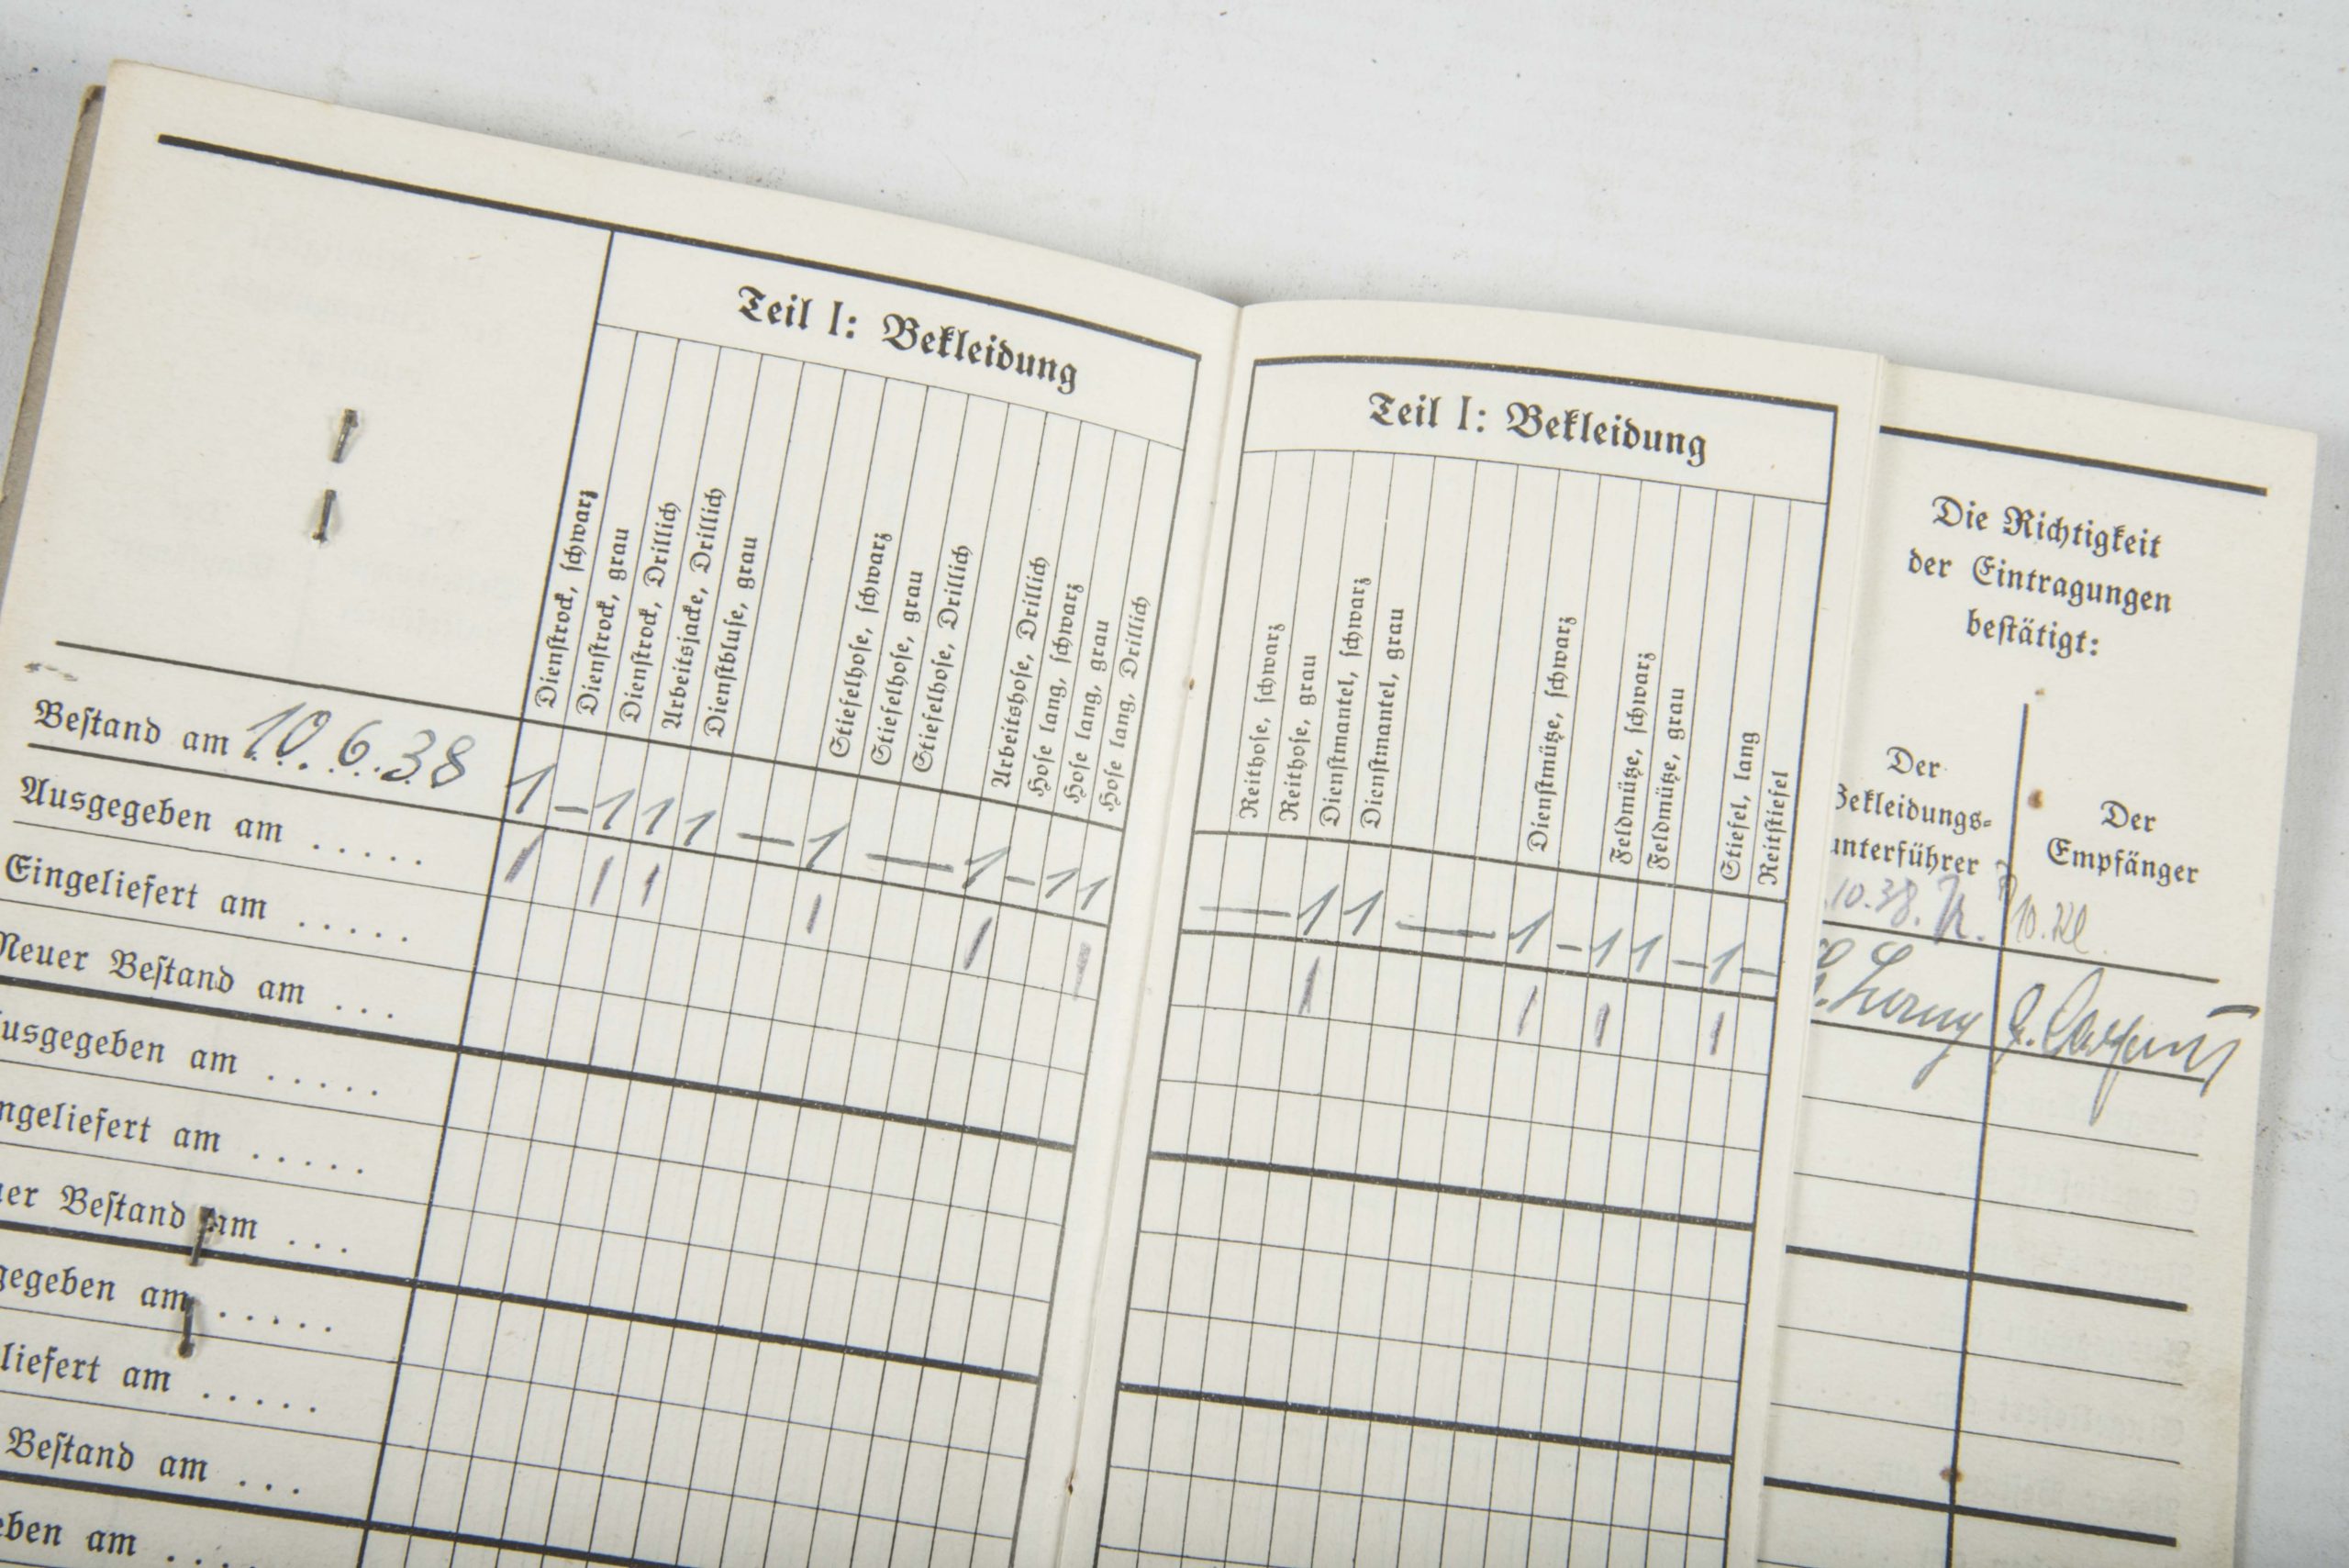 Teil I: Bekleidung
Dienstrock, schwarz
Dienstrock, grau
Dienstrock, Drillich
Arbeitsjacke, Drillich
Dienstbluse, grau
Stiefelhose, schwarz
Stiefelhose, grau
Stiefelhose, Drillich
Arbeitshose, Drillich
Hose lang, schwarz
Hose lang, grau
Hose lang, Drillich
Bestand am 10.6.38
1 – 1 1 1 — 1 — 1 – 1 1
Ausgegeben am .....
1 1 1 1 1 1
Eingeliefert am .....
Neuer Bestand am ...
usgegeben am .....
ngeliefert am .....
er Bestand am ...
gegeben am .....
liefert am .....
Bestand am ...
eben am ....
Teil I: Bekleidung
Reithose, schwarz
Reithose, grau
Dienstmantel, schwarz
Dienstmantel, grau
Dienstmütze, schwarz
Feldmütze, schwarz
Feldmütze, grau
Stiefel, lang
Reitstiefel
— 1 1 — 1 – 1 1 – 1 –
1 1 1 1
Die Richtigkeit
der Eintragungen
bestätigt:
Der
Bekleidungs=
unterführer
Der
Empfänger
.10.38.